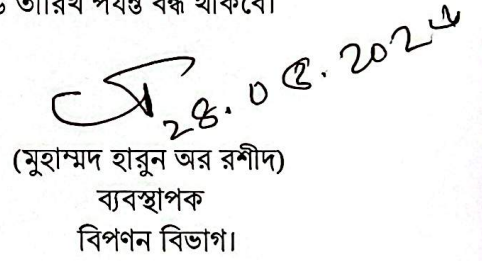 তারিখ পর্যন্ত বন্ধ থাকবে।
(মুহাম্মদ হারুন অর রশীদ)
ব্যবস্থাপক
বিপণন বিভাগ।